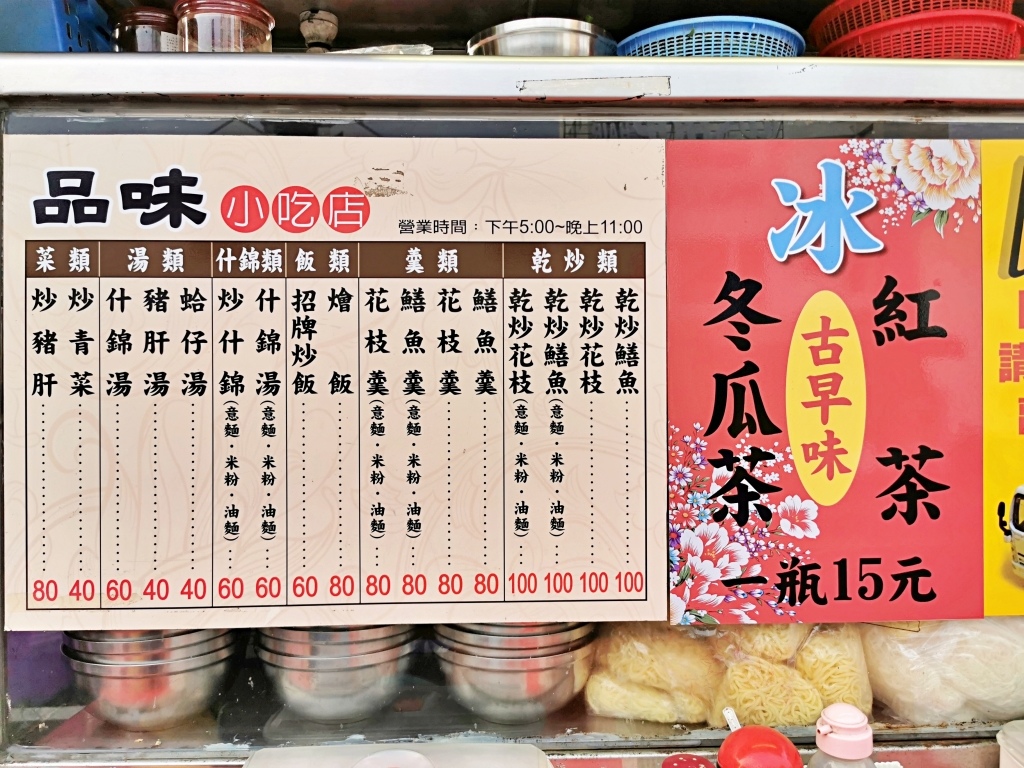 品味 小吃店
營業時間：下午5:00~晚上11:00
菜類
炒豬肝 80
炒青菜 40
湯類
什錦湯 60
豬肝湯 40
蛤仔湯 40
什錦類
炒什錦(意麵·米粉·油麵) 60
什錦湯(意麵·米粉·油麵) 60
飯類
招牌炒飯 60
燴飯 80
羹類
花枝羹(意麵·米粉·油麵) 80
鱔魚羹(意麵·米粉·油麵) 80
花枝羹 80
鱔魚羹 80
乾炒類
乾炒花枝(意麵·米粉·油麵) 100
乾炒鱔魚(意麵·米粉·油麵) 100
乾炒花枝 100
乾炒鱔魚 100
冰
紅茶
古早味
冬瓜茶
一瓶15元
請